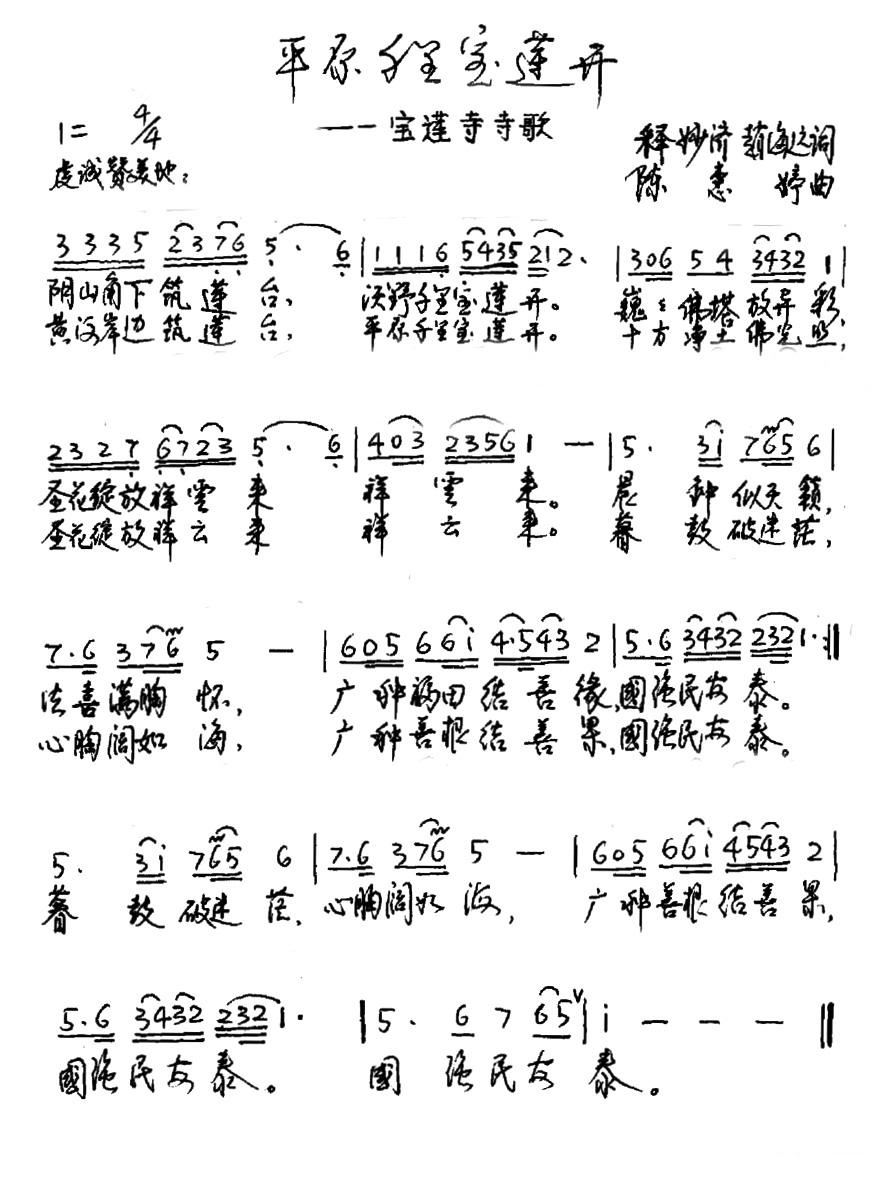 平原千里宝莲开
——宝莲寺寺歌
1= 4/4
释妙济 赵海边词
虔诚赞美地:
陈惠婷曲
3 3 3 5 2 3 7 6 5 · 6 | 1 1 1 6 5 4 3 5 2 1 2 · | 3 0 6 5 4 3 4 3 2 1 |
阴山角下筑莲台, 沃野千里宝莲开。 巍巍佛塔放异彩,
黄河岸边筑莲台, 平原千里宝莲开。 十方净土佛光照,
2 3 2 7 6 7 2 3 5 · 6 | 4 0 3 2 3 5 6 1 — | 5 · 3 i 7 6 5 6 |
圣花绽放祥雲来 祥雲来。 晨钟似天籁,
圣花绽放祥云来 祥云来。 暮鼓破迷茫,
7 · 6 3 7 6 5 — | 6 0 5 6 6 i 4 · 5 4 3 2 | 5 · 6 3 4 3 2 2 3 2 1 · :||
法喜满胸怀, 广种福田结善缘,國强民安泰。
心胸阔如海, 广种善根结善果,國强民安泰。
5 · 3 i 7 6 5 6 | 7 · 6 3 7 6 5 — | 6 0 5 6 6 i 4 5 4 3 2 |
暮鼓破迷茫, 心胸阔如海, 广种善根结善果,
5 · 6 3 4 3 2 2 3 2 1 · | 5 · 6 7 6 5 V | i — — — ||
國强民安泰。 國强民安泰。